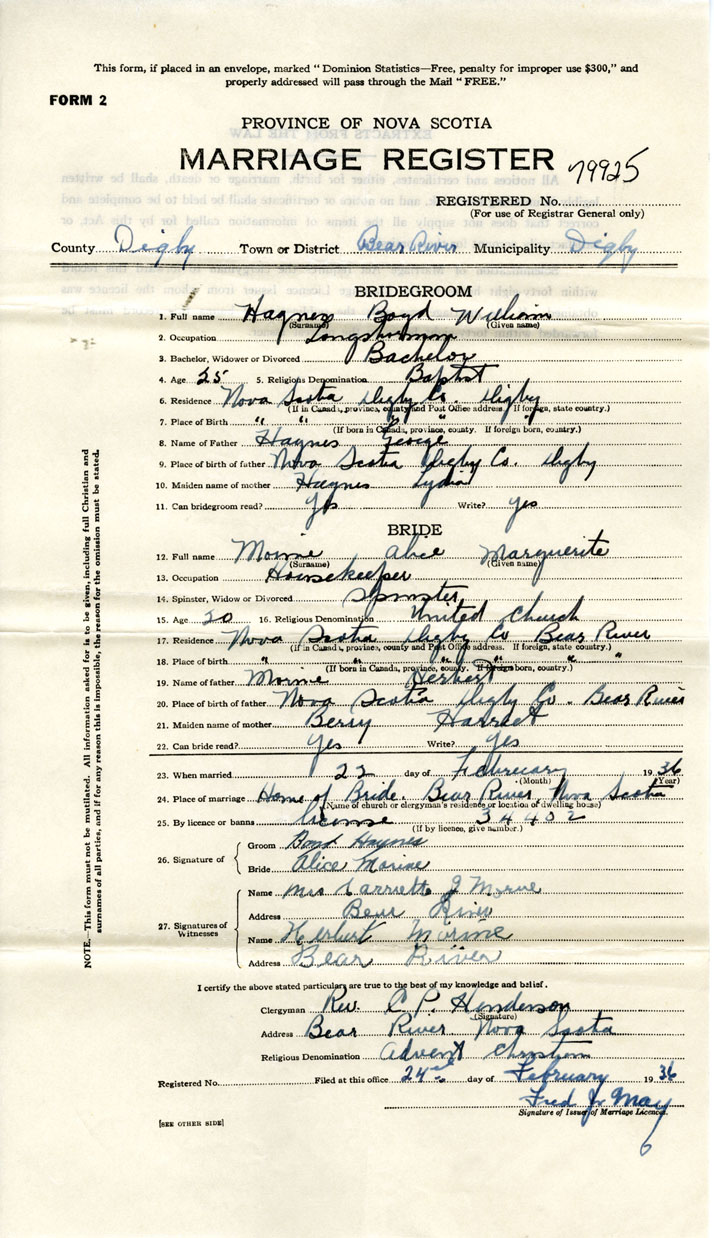 This form, if placed in an envelope, marked "Dominion Statistics—Free, penalty for improper use $300," and
properly addressed will pass through the Mail "FREE."
FORM 2
PROVINCE OF NOVA SCOTIA
MARRIAGE REGISTER
79925
REGISTERED No.
(For use of Registrar General only)
County Digby Town or District Bear River Municipality Digby
BRIDEGROOM
1. Full name Haynes Boyd William
(Surname) (Given name)
2. Occupation Longshurman
3. Bachelor, Widower or Divorced Bachelor
4. Age 25 5. Religious Denomination Baptist
6. Residence Nova Scotia Digby Co. Digby
(If in Canada, province, county and Post Office address. If foreign, state country.)
7. Place of Birth " " " "
(If born in Canada, province, county. If foreign born, country.)
8. Name of Father Haynes George
9. Place of birth of father Nova Scotia Digby Co. Digby
10. Maiden name of mother Haynes Lydia
11. Can bridegroom read? yes Write? yes
BRIDE
12. Full name Morine Alice Marguerite
(Surname) (Given name)
13. Occupation Housekeeper
14. Spinster, Widow or Divorced Spinster
15. Age 20 16. Religious Denomination United Church
17. Residence Nova Scotia Digby Co Bear River
(If in Canada, province, county and Post Office address. If foreign, state country.)
18. Place of birth " " " " "
(If born in Canada, province, county. If foreign born, country.)
19. Name of father Morine Herbert
20. Place of birth of father Nova Scotia Digby Co. Bear River
21. Maiden name of mother Harriet
22. Can bride read? yes Write? yes
23. When married 22 day of February 1936
(Month) (Year)
24. Place of marriage Home of Bride. Bear River Nova Scotia
(Name of church or clergyman's residence or location of dwelling house)
25. By licence or banns license 34402
(If by licence, give number.)
26. Signature of
Groom Boyd Haynes
Bride Alice Morine
27. Signatures of Witnesses
Name Mrs Harriette J Morine
Address Bear River
Name Herbert Morine
Address Bear River
I certify the above stated particulars are true to the best of my knowledge and belief.
Clergyman Rev. C. P. Henderson
(Signature)
Address Bear River Nova Scotia
Religious Denomination Advent Christian
Registered No. Filed at this office 24 day of February 1936
Fred J. May
Signature of Issuer of Marriage Licences.
[SEE OTHER SIDE]
6
NOTE.—This form must not be mutilated. All information asked for is to be given, including full Christian and
surnames of all parties, and if for any reason this is impossible, the reason for the omission must be stated.